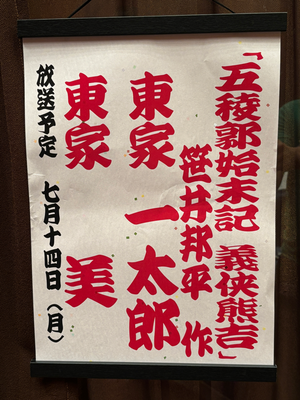 「五稜郭始末記　義侠熊吉」
笹井邦平　作
東家　一太郎
東家　美
放送予定　七月十四日（月）